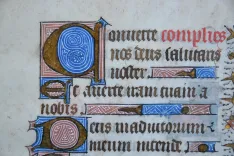 Converte complies
nos deus salutaris
noster
Et averte iram tuam a
nobis
Deus in adiutorium
meum intende